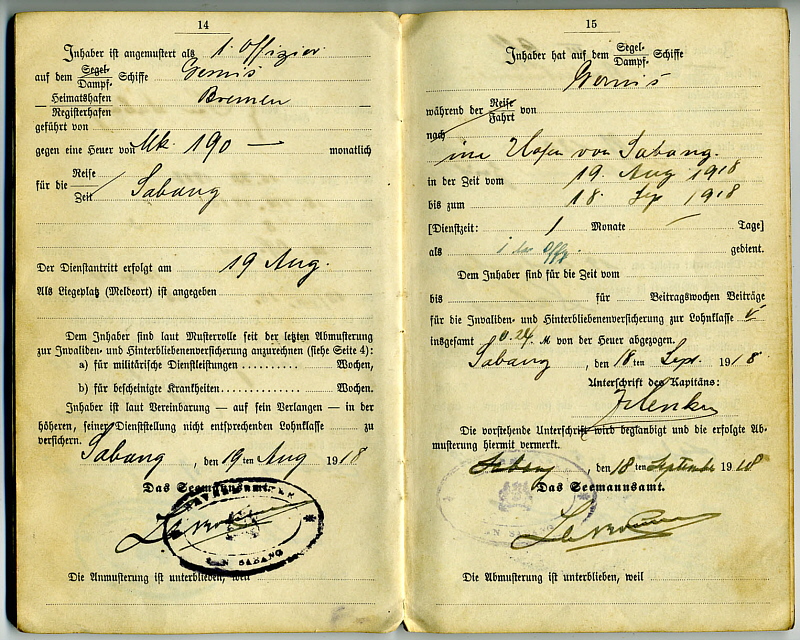 14
Inhaber ist angemustert als 1. Offizier
auf dem Segel- Dampf- Schiffe
Heimatshafen Bremen
Registerhafen
geführt von
gegen eine Heuer von Mk. 190 — monatlich
für die Reise
Zeit Sabang
Der Dienstantritt erfolgt am 19 Aug.
Als Liegeplatz (Meldeort) ist angegeben
Dem Inhaber sind laut Musterrolle seit der letzten Abmusterung
zur Invaliden- und Hinterbliebenenversicherung anzurechnen (siehe Seite 4):
a) für militärische Dienstleistungen .......... Wochen,
b) für bescheinigte Krankheiten .......... Wochen.
Inhaber ist laut Vereinbarung — auf sein Verlangen — in der
höheren, seiner Dienststellung nicht entsprechenden Lohnklasse zu
versichern.
Sabang, den 19ten Aug 1918
Das Seemannsamt.
SABANG
Die Anmusterung ist unterblieben, weil
15
Inhaber hat auf dem Segel- Dampf- Schiffe
während der Reise Fahrt von
nach
im Hafen von Sabang.
in der Zeit vom 19. Aug 1918
bis zum 18. Sep 1918
[Dienstzeit: 1 Monate — Tage]
als gedient.
Dem Inhaber sind für die Zeit vom
bis für Beitragswochen Beiträge
für die Invaliden- und Hinterbliebenenversicherung zur Lohnklasse V
insgesamt 0.24 M von der Heuer abgezogen.
Sabang, den 18ten Sept. 1918.
Unterschrift des Kapitäns:
Die vorstehende Unterschrift wird beglaubigt und die erfolgte Ab-
musterung hiermit vermerkt.
Sabang, den 18ten September 1918
Das Seemannsamt.
Die Abmusterung ist unterblieben, weil